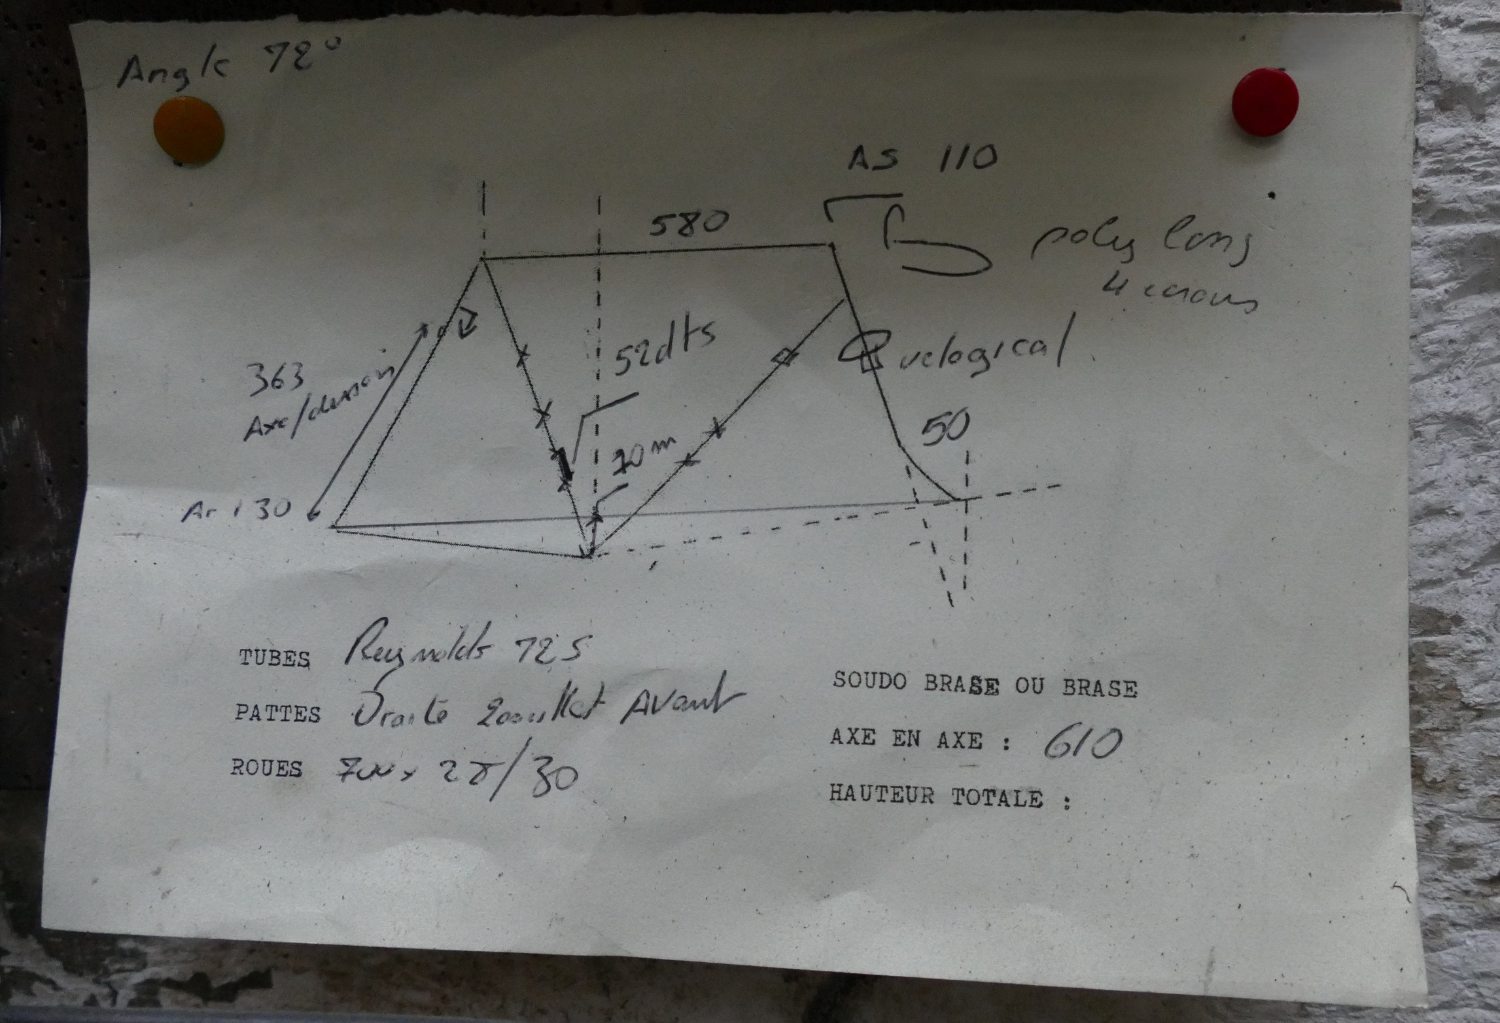 Angle 72°
AS 110
580
poly long
52dts
363
Axe/dessin
velogical
50
Ar 130
TUBES Reynolds 725
PATTES Droite Avant
ROUES 700x 28/30
SOUDO BRASE OU BRASE
AXE EN AXE : 610
HAUTEUR TOTALE :